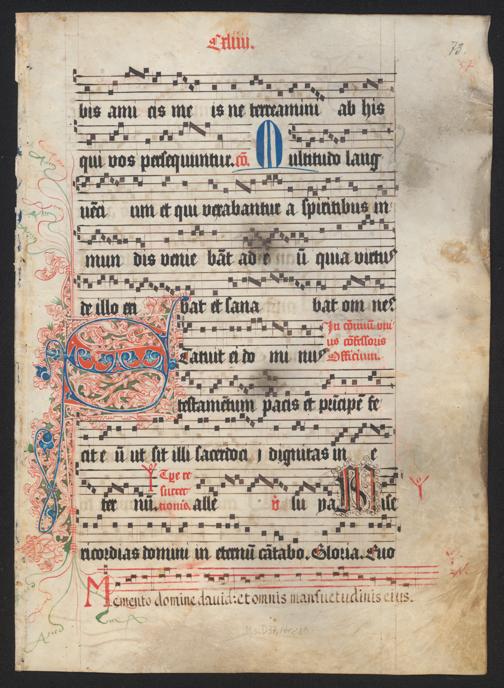 Cxliiij.
73.
bis ami cis me is ne terreamini ab his
qui vos persequuntur. cō. Multitudo lang
uēti um et qui vexabantur a spiritibus in
mun dis venie bāt ad e ū quia virtus
de illo exi bat et sana bat om nes
In cōmuni uni
us cōfessoris
Officium.
Statuit ei do mi nus
testamētum pacis et pricipē fe
cit e ū ut sit illi sacerdoci j dignitas in e
ter nū. Tpe re
surrec
tionis. alle lu ya Mise
ricordias domini in eternū cātabo. Gloria. Euo
Memento domine dauid: et omnis mansuetudinis eius.